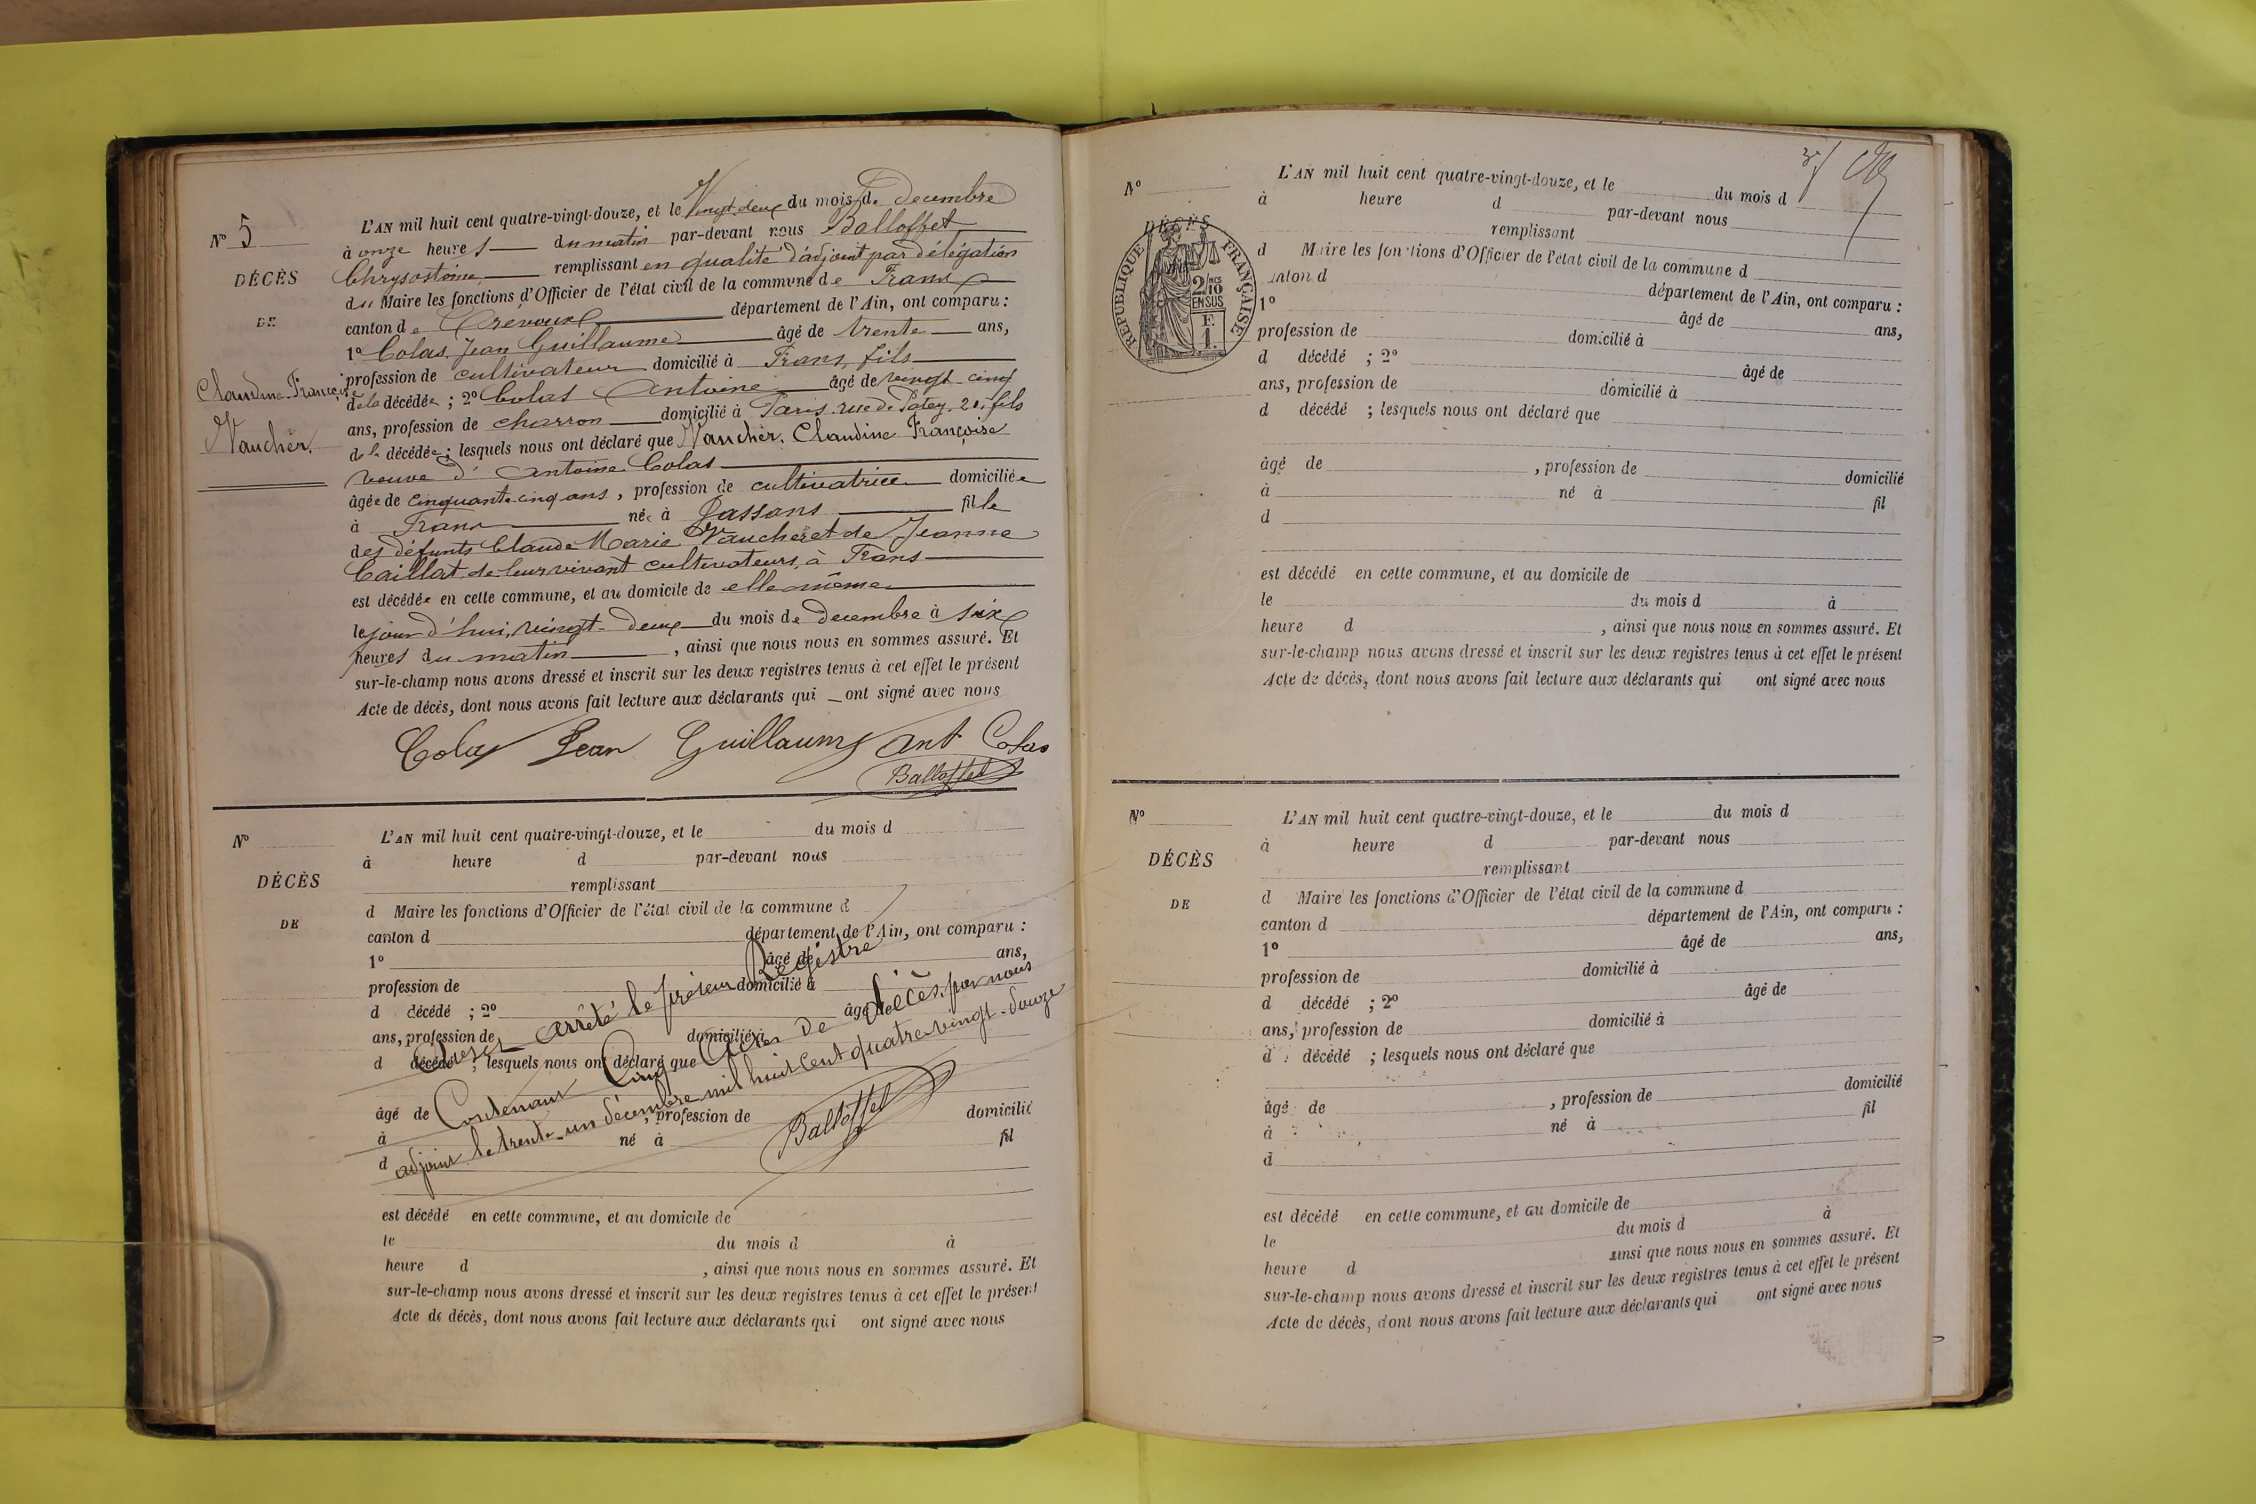 N° 5
DÉCÈS
DE
Claudine Françoise
Vaucher.
L'AN mil huit cent quatre-vingt-douze, et le Vingt-deux du mois de Decembre
à onze heures du matin par-devant nous Balloffet
Chrysostôme, remplissant en qualité d'adjoint par délégation
du Maire les fonctions d'Officier de l'état civil de la commune de Frans
canton de Trévoux département de l'Ain, ont comparu :
1° Colas, Jean Guillaume âgé de trente ans,
profession de cultivateur domicilié à Frans, fils
de la décédée ; 2° Colas Antoine âgé de vingt-cinq
ans, profession de charron domicilié à Paris rue de 20, fils
de la décédée ; lesquels nous ont déclaré que Vauchèr, Claudine Françoise
veuve d'Antoine Colas
âgée de cinquante-cinq ans, profession de cultivatrice domiciliée
à Frans née à Jassans fille
des défunts Claude Marie Vaucher et de Jeanne
Caillat, de leur vivant cultivateurs à Frans
est décédée en cette commune, et au domicile de elle même
le jour d'hui, vingt-deux du mois de decembre à six
heures du matin, ainsi que nous nous en sommes assuré. Et
sur-le-champ nous avons dressé et inscrit sur les deux registres tenus à cet effet le présent
Acte de décès, dont nous avons fait lecture aux déclarants qui ont signé avec nous
Colas Jean Guillaume Ant Colas
Balloffet
N°
DÉCÈS
DE
L'AN mil huit cent quatre-vingt-douze, et le du mois d
à heure d par-devant nous
remplissant
d Maire les fonctions d'Officier de l'état civil de la commune d
canton d département de l'Ain, ont comparu :
1° âgé de ans,
profession de domicilié à
d décédé ; 2° âgé de
ans, profession de domicilié à
d décédé ; lesquels nous ont déclaré que
âgé de , profession de domicilié
à né à fil
d
est décédé en cette commune, et au domicile de
le du mois d à
heure d , ainsi que nous nous en sommes assuré. Et
sur-le-champ nous avons dressé et inscrit sur les deux registres tenus à cet effet le présent
Acte de décès, dont nous avons fait lecture aux déclarants qui ont signé avec nous
arrêté le présent Registre
Contenant Cinq Actes de décès, par nous
adjoint le trente-un décembre mil huit cent quatre-vingt-douze
Balloffet
N°
DÉCÈS
RÉPUBLIQUE FRANÇAISE
2/10
EN SUS
F.
1.
L'AN mil huit cent quatre-vingt-douze, et le du mois d
à heure d par-devant nous
remplissant
d Maire les fonctions d'Officier de l'état civil de la commune d
anton d département de l'Ain, ont comparu :
1° âgé de ans,
profession de domicilié à
d décédé ; 2° âgé de
ans, profession de domicilié à
d décédé ; lesquels nous ont déclaré que
âgé de , profession de domicilié
à né à fil
d
est décédé en cette commune, et au domicile de
le du mois d à
heure d , ainsi que nous nous en sommes assuré. Et
sur-le-champ nous avons dressé et inscrit sur les deux registres tenus à cet effet le présent
Acte de décès, dont nous avons fait lecture aux déclarants qui ont signé avec nous
N°
DÉCÈS
DE
L'AN mil huit cent quatre-vingt-douze, et le du mois d
à heure d par-devant nous
remplissant
d Maire les fonctions d'Officier de l'état civil de la commune d
canton d département de l'Ain, ont comparu :
1° âgé de ans,
profession de domicilié à
d décédé ; 2° âgé de
ans, profession de domicilié à
d décédé ; lesquels nous ont déclaré que
âgé de , profession de domicilié
à né à fil
d
est décédé en cette commune, et au domicile de
le du mois d à
heure d ainsi que nous nous en sommes assuré. Et
sur-le-champ nous avons dressé et inscrit sur les deux registres tenus à cet effet le présent
Acte de décès, dont nous avons fait lecture aux déclarants qui ont signé avec nous